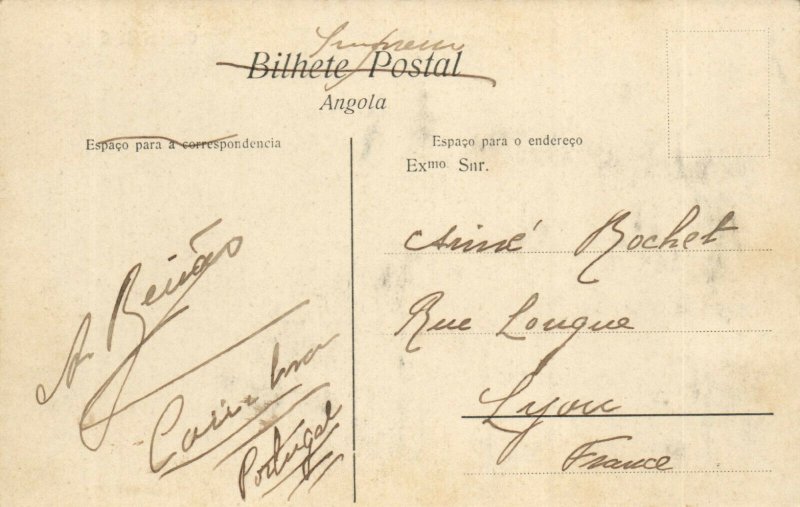 Impresso
Bilhete Postal
Angola
Espaço para a correspondencia
A. Beirão
Coimbra
Portugal
Espaço para o endereço
Exmo Snr.
Aimé Rochet
Rue Longue
Lyon
France